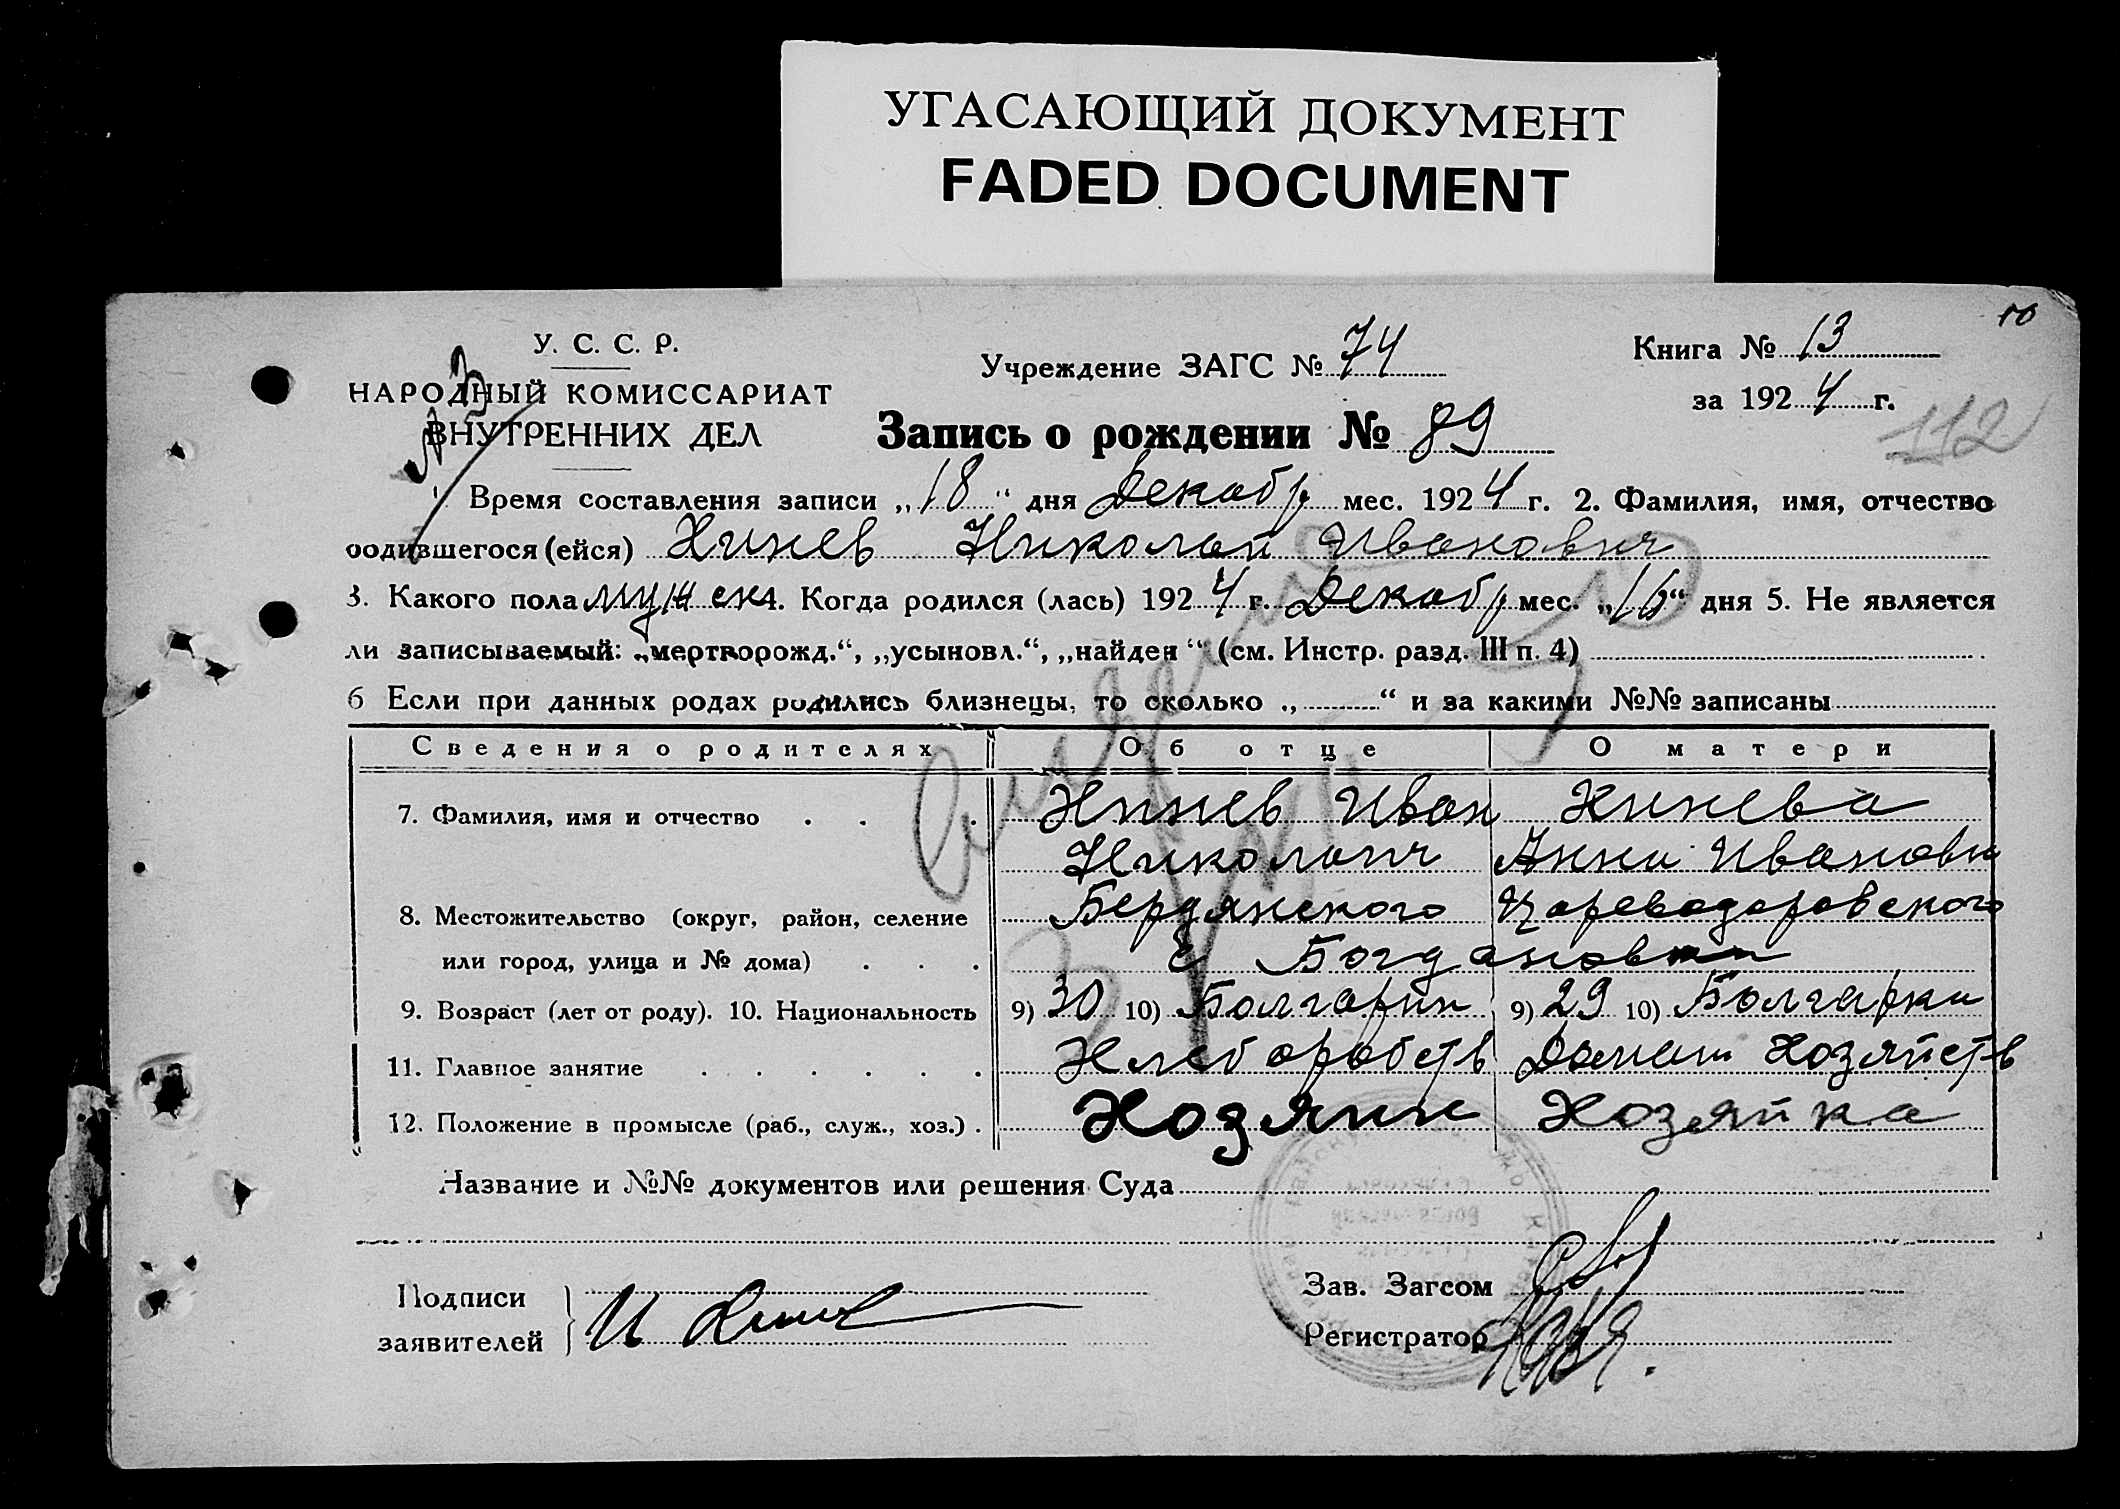 УГАСАЮЩИЙ ДОКУМЕНТ
FADED DOCUMENT
10
У. С. С. Р.
Учреждение ЗАГС № 74
Книга № 13
НАРОДНЫЙ КОМИССАРИАТ
за 1924 г.
ВНУТРЕННИХ ДЕЛ
№ 3
Запись о рождении № 89
112
Время составления записи „18“ дня Декабр мес. 1924 г. 2. Фамилия, имя, отчество
родившегося (ейся) Хинев Николай Иванович
3. Какого пола мужск 4. Когда родился (лась) 1924 г. Декабр мес. „16“ дня 5. Не является
ли записываемый: „мертворожд.“, „усыновл.“, „найден“ (см. Инстр. разд. III п. 4)
6 Если при данных родах родились близнецы, то сколько „ “ и за какими №№ записаны
Сведения о родителях Об отце О матери
7. Фамилия, имя и отчество Хинев Иван Хинева
Николаич Анна Ивановн
8. Местожительство (округ, район, селение Бердянского Цареводаровского
или город, улица и № дома) с Богдановки
9. Возраст (лет от роду). 10. Национальность 9) 30 10) Болгарин 9) 29 10) Болгарка
11. Главное занятие Хлеборобств Домаш Хозяйств
12. Положение в промысле (раб., служ., хоз.) Хозяин Хозяйка
Название и №№ документов или решения Суда
Подписи
заявителей И Хинев
Зав. Загсом
Регистратор